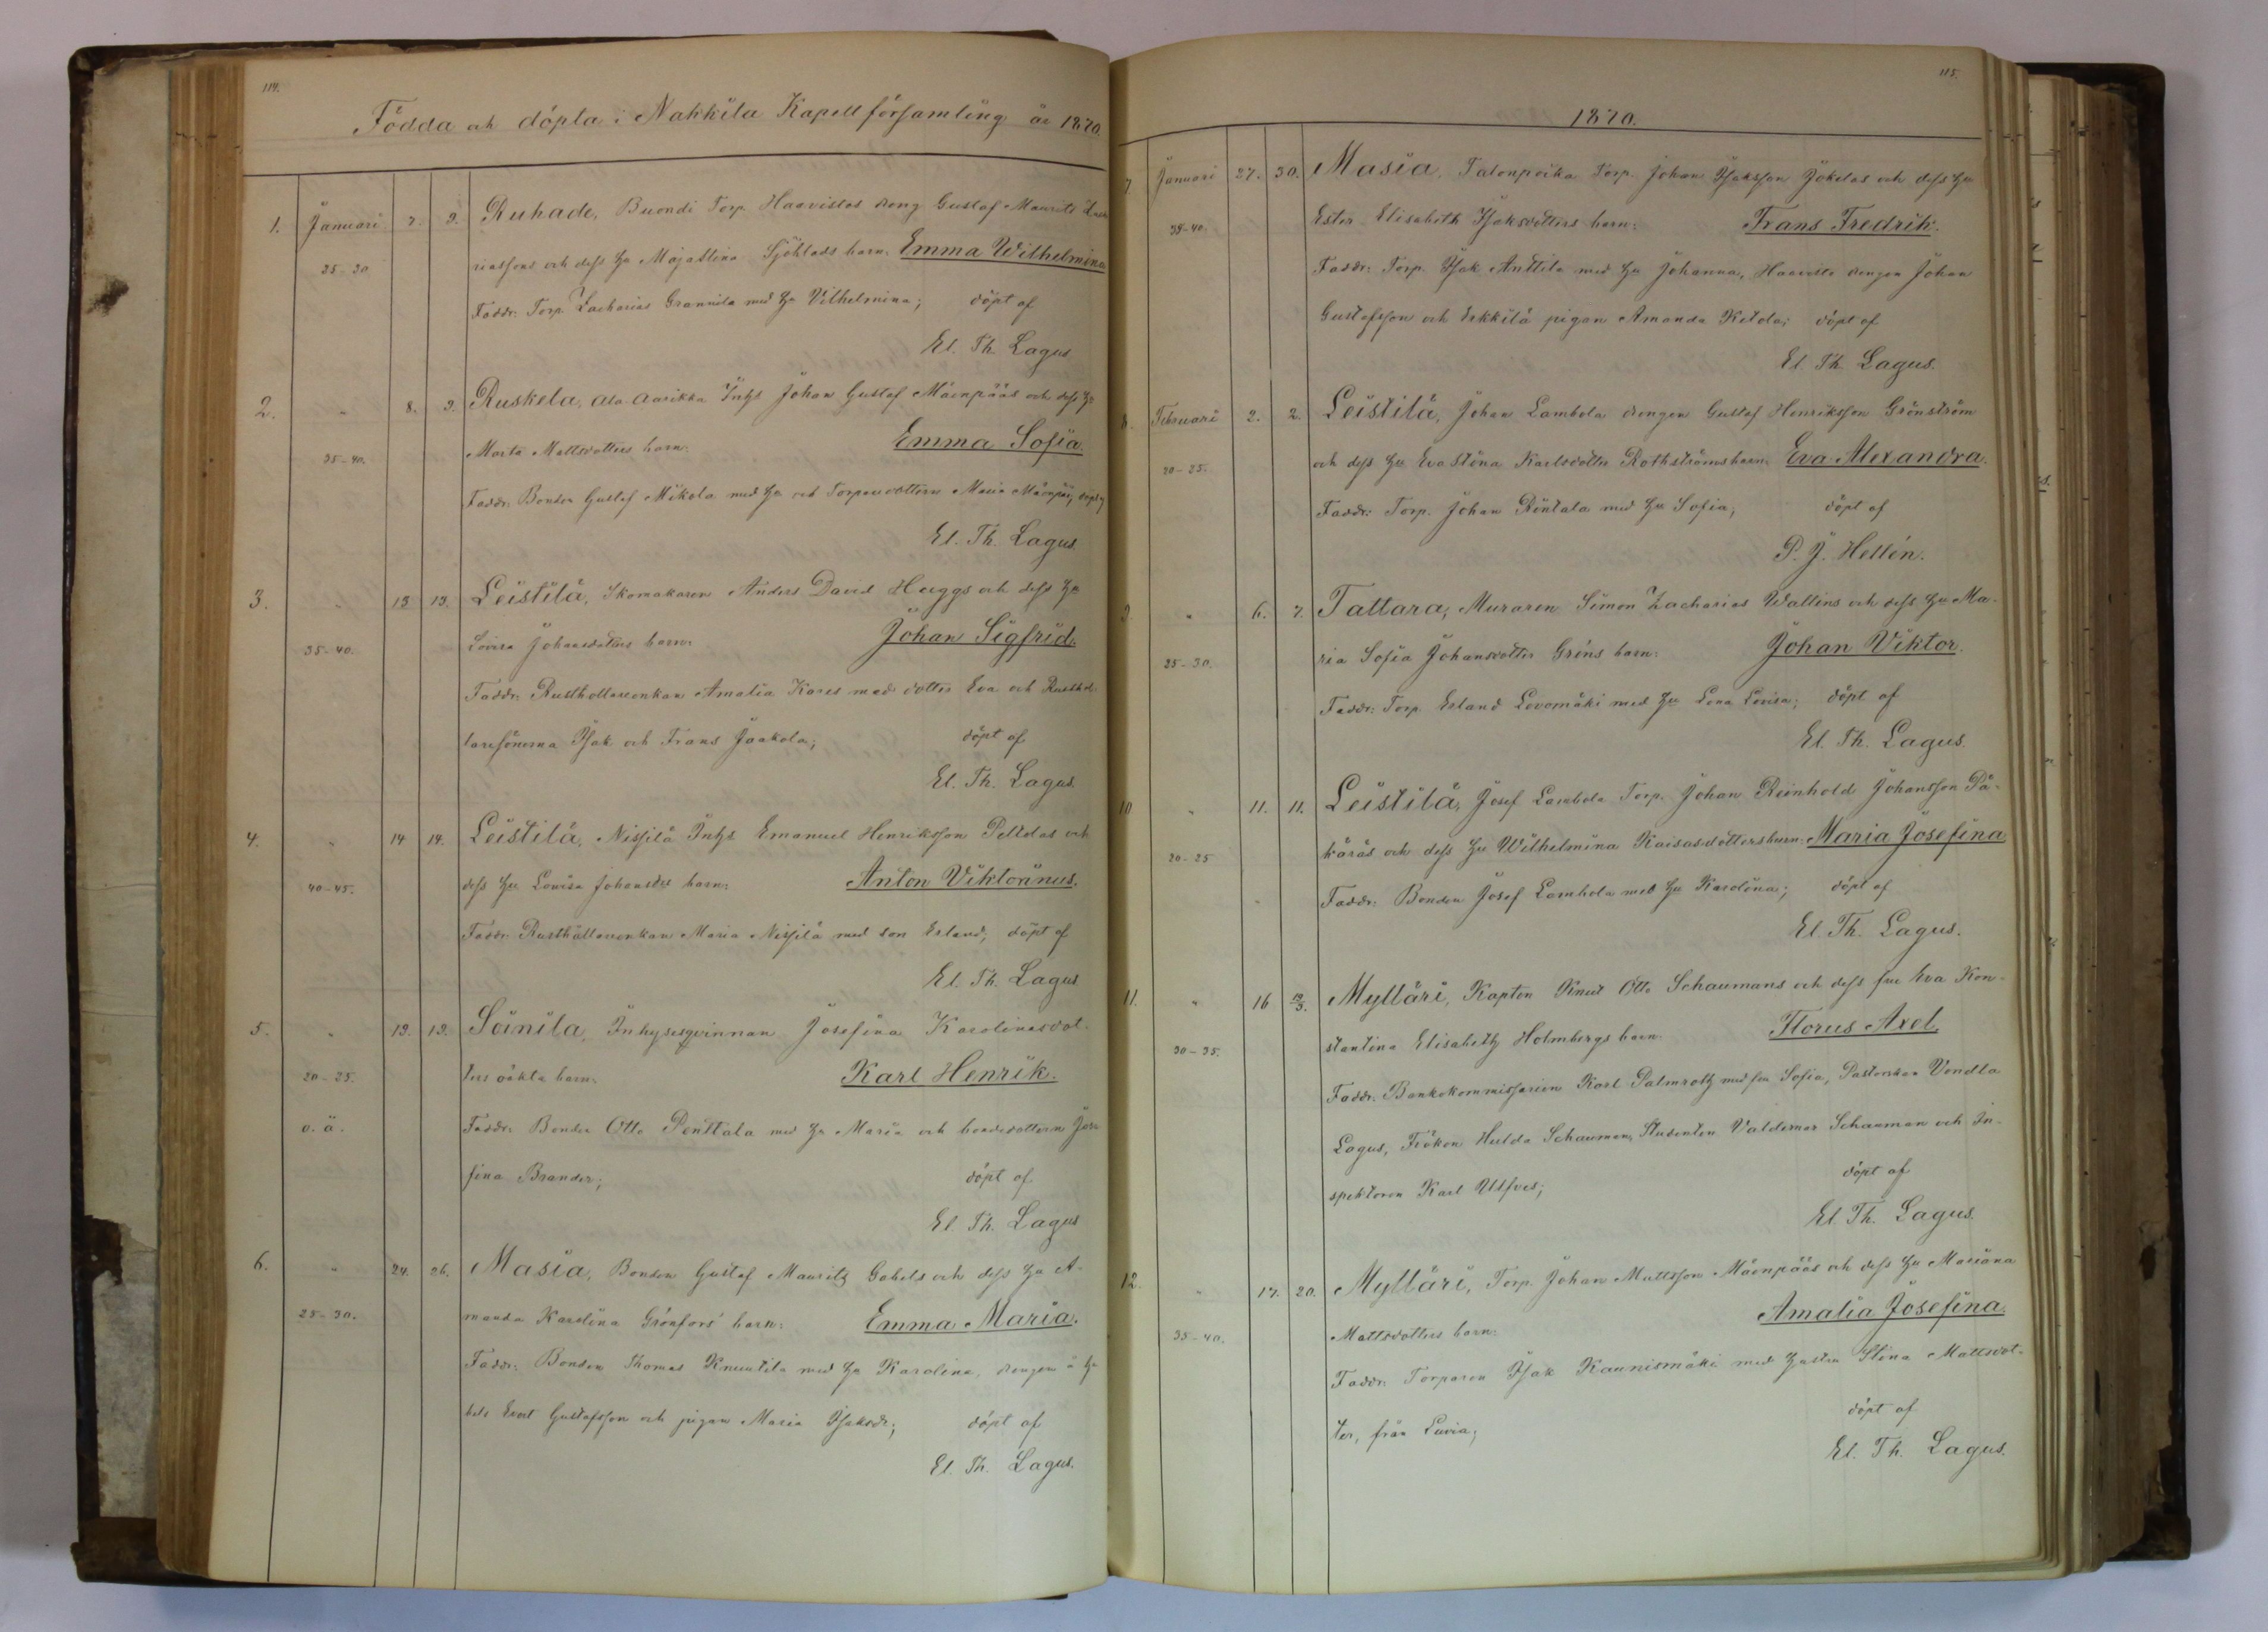 114.
Födda och döpta i Nakkila Kapellförsamling år 1870.
1. Januari 7. 9. Ruhade, Buondi Torp. Haavistos dreng Gustaf Maurits Zach
25-30 riassons och dess Hu Majastina Sjöblads barn: Emma Wilhelmina
Faddr: Torp. Zacharias Grannila med Hu Vilhelmina; döpt af
El. Th. Lagus
2. " 8. 9. Ruskela, Ala Aarikka Inhs Johan Gustaf Mäenpääs och dess Hu
35-40. Marta Mattsdotters barn: Emma Sofia.
Faddr: Bonden Gustaf Mikola med Hu och Torparedottern Maria Mäenpää; döpt af
El. Th. Lagus.
3. " 13 13. Leistilä, Skomakaren Anders David Huggs och dess Hu
35-40. Lovisa Johansdotters barn: Johan Sigfrid.
Faddr: Rusthollareenkan Amalia Kares med dotter Eva och Rusthol-
laresönerna Isak och Frans Jaakola; döpt af
El. Th. Lagus.
4. " 14 14. Leistilä, Nissilä Inhs Emanuel Henriksson Peltolas och
40-45. dess Hu Lovisa Johansdrs barn: Anton Viktorinus.
Faddr: Rusthållareenkan Maria Nissilä med son Erland; döpt af
El. Th. Lagus
5. " 19. 19. Soinila, Inhysesqvinnan Josefina Karolinasdot-
20-25. ters oäkta barn: Karl Henrik.
o. ä. Faddr: Bonden Otto Penttala med Hu Maria och bondedottern Jose
fina Brander; döpt af
El. Th. Lagus
6. " 24. 26. Masia, Bonden Gustaf Mauritz Gabels och dess Hu A-
25-30. manda Karolina Grönfors' barn: Emma Maria.
Faddr: Bonden Thomas Knuutila med Hu Karolina, drengen å Ga
bels Evert Gustafsson och pigan Maria Isaksdr; döpt af
El. Th. Lagus.
115.
1870.
7. Januari 27. 30. Masia, Talonpoika Torp. Johan Isaksson Jokelas och dess Hu
35-40. Ester Elisabeth Isaksdotters barn: Frans Fredrik.
Faddr: Torp. Isak Anttila med Hu Johanna, Haavisto drengen Johan
Gustafsson och Erkkilä pigan Amanda Kitola; döpt af
El. Th. Lagus.
8. Februari 2. 2. Leistilä, Johan Lambola drengen Gustaf Henriksson Grönström
20-25. och dess Hu Eva Stina Karlsdotter Rothströms barn: Eva Alexandra.
Faddr: Torp. Johan Rintala med Hu Sofia; döpt af
P. J. Hellén.
9. " 6. 7. Tattara, Muraren Simon Zacharias Wallins och dess Hu Ma-
25-30. ria Sofia Johansdotter Gröns barn: Johan Viktor.
Faddr: Torp. Erland Levomäki med Hu Lena Lovisa; döpt af
El. Th. Lagus.
10 " 11. 11. Leistilä, Josef Lambola Torp. Johan Reinhold Johansson Pä-
20-25 käräs och dess Hu Wilhelmina Kaisasdotters barn: Maria Josefina
Faddr: Bonden Josef Lambola med Hu Karolina; döpt af
El. Th. Lagus.
11. " 16 19/3. Mylläri, Kapten Knut Otto Schaumans och dess fru Eva Kon-
30-35. stantina Elisabeth Holmbergs barn: Florus Axel.
Faddr: Bankokommissarien Karl Palmroth med fru Sofia, Pastorskan Vendla
Lagus, Fröken Hulda Schauman, Studenten Valdemar Schauman och In-
spektoren Karl Ulfves; döpt af
El. Th. Lagus.
12. " 17. 20. Mylläri, Torp. Johan Mattsson Mäenpääs och dess Hu Mariana
35-40. Mattsdotters barn: Amalia Josefina.
Faddr: Torparen Isak Kaunismäki med Hustru Stina Mattsdot-
ter, från Luvia; döpt af
El. Th. Lagus.